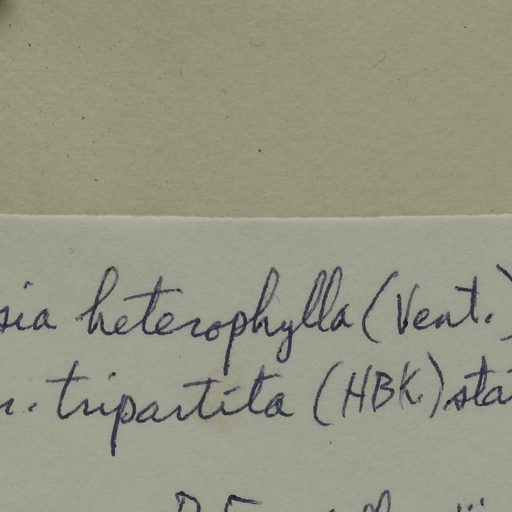 sia heterophylla (Vent.)
r. tripartita (HBK.) sta